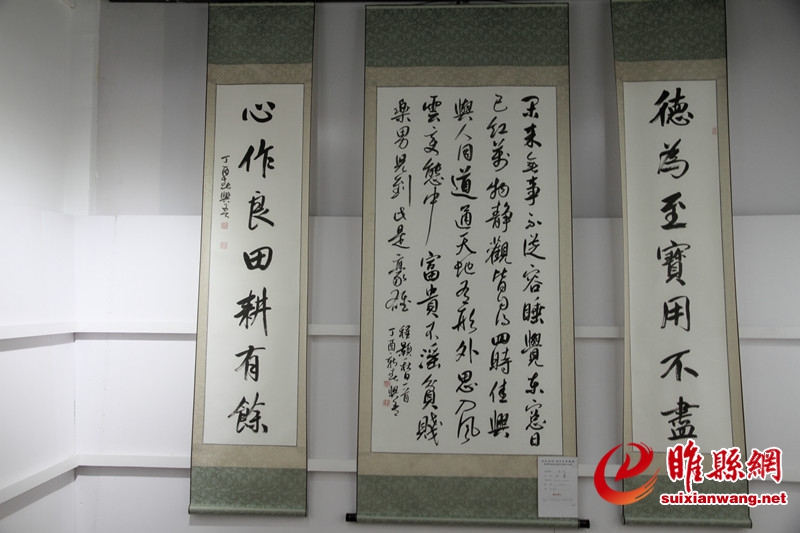 德為至寶用不盡
閑来無事不從容睡覺東窗日
已紅萬物靜觀皆自得四時佳興
與人同道通天地有形外思入風
雲變態中富貴不淫貧賤
樂男兒到此是豪雄
程顥秋日一首
丁酉
心作良田耕有餘
丁酉
睢縣網
suixianwang.net